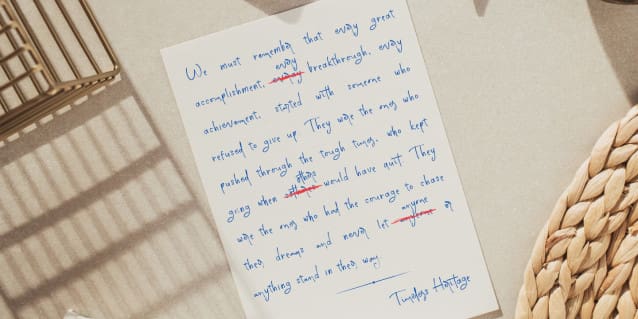 We must remember that every great
every
accomplishment, breakthrough, every
achievement, started with someone who
refused to give up They were the ones who
pushed through the tough times, who kept
others
going when would have quit. They
were the ones who had the courage to chase
anyone
their dreams and never let anyone or
anything stand in their way
Timeless Heritage